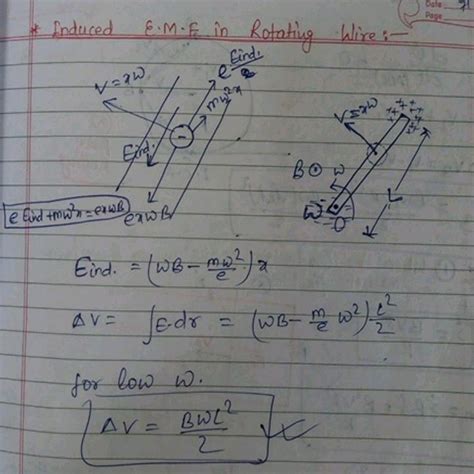 Date
Page
* Induced E.M.F in Rotating Wire:-
V=xω
e Eind.
mω²x
Eind.
exωB
e Eind + mω²x = exωB
V=xω
B ⊙ ω
++++
L
O
Eind. = (ωB - mω²/e) x
ΔV = ∫E.dr = (ωB - m/e ω²) L²/2
for low ω.
ΔV = BωL²/2